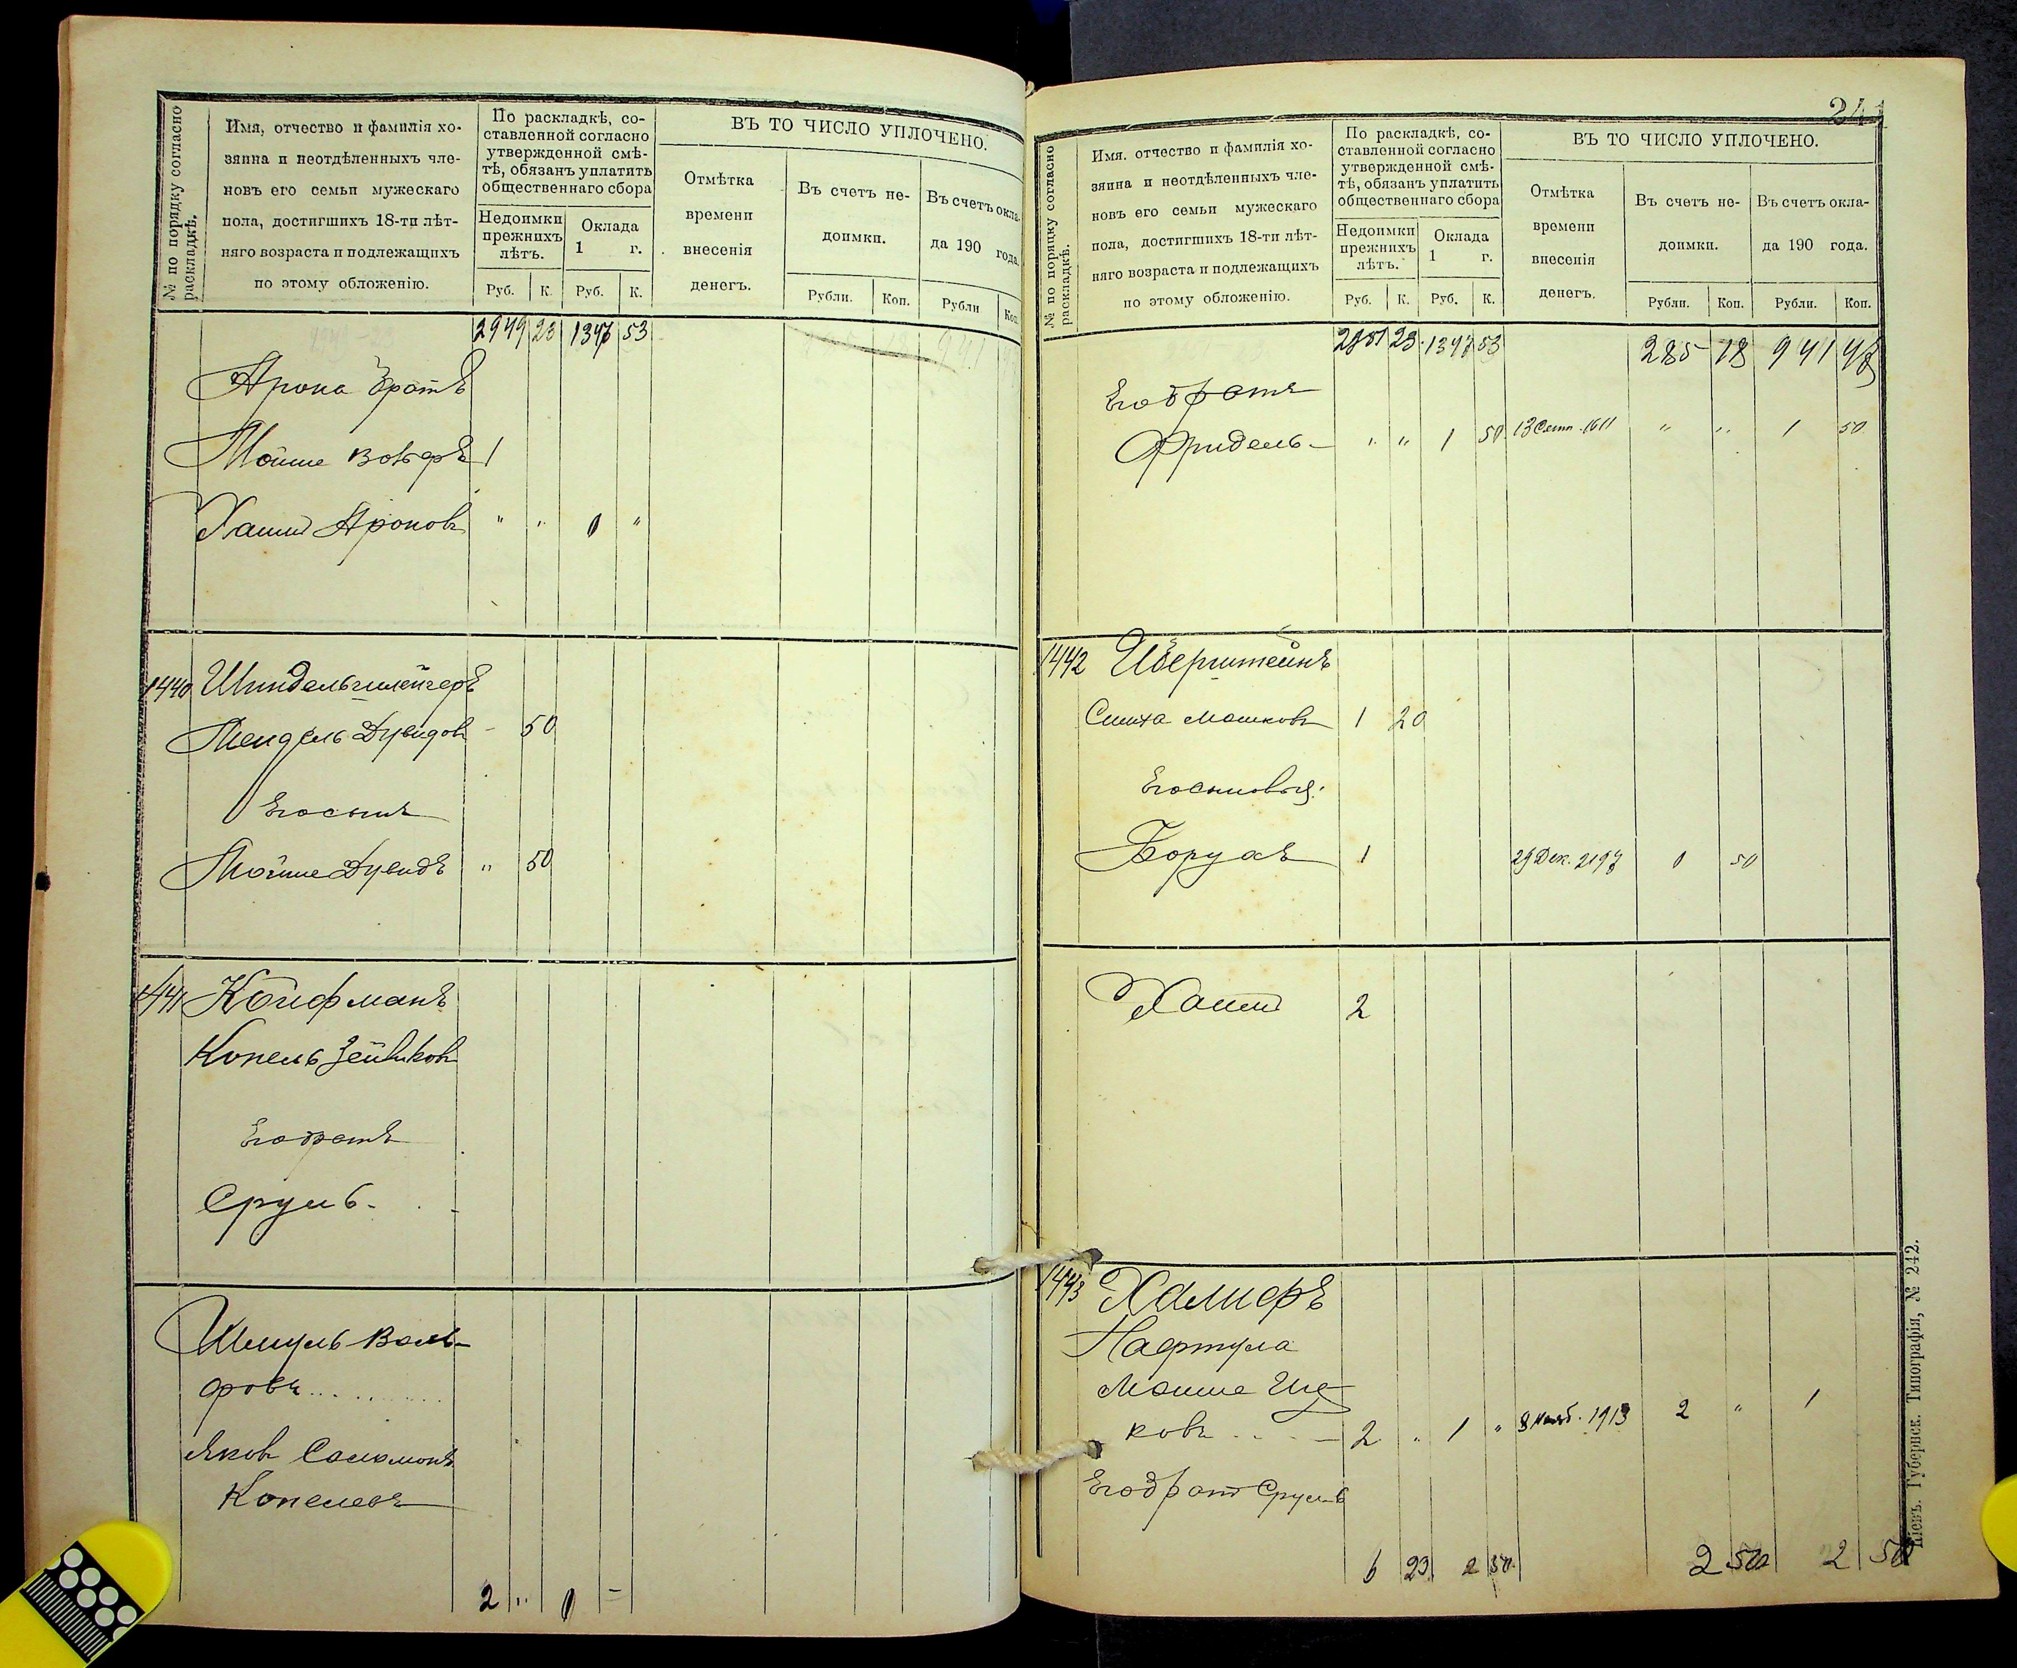 № по порядку согласно раскладкѣ.
Имя, отчество и фамилія хо-
зяина и неотдѣленныхъ чле-
новъ его семьи мужескаго
пола, достигшихъ 18-ти лѣт-
няго возраста и подлежащихъ
по этому обложенію.
По раскладкѣ, со-
ставленной согласно
утвержденной смѣ-
тѣ, обязанъ уплатить
общественнаго сбора
Недоимки прежнихъ лѣтъ.
Оклада 1 г.
Руб. К. Руб. К.
ВЪ ТО ЧИСЛО УПЛОЧЕНО.
Отмѣтка времени внесенія денегъ.
Въ счетъ не- доимки.
Въ счетъ окла- да 190 года.
Рубли. Коп. Рубли Коп.
2949 23 1346 53
Арона братъ
Мойше 1
Хаимъ Ароновъ " " 1 "
1440 Шпидельшлейгеръ
Мендель Дувидовъ - 50
Его сынъ
Мойше Дувидъ " 50
1441 Койфманъ
Копель Зейликовъ
Его братъ
Сруль
Шмуль Воль-
фовъ
Яковъ Соломонъ
Копелевъ
2 " 1 -
241
№ по порядку согласно раскладкѣ.
Имя. отчество и фамилія хо-
зяина и неотдѣленныхъ чле-
новъ его семьи мужескаго
пола, достигшихъ 18-ти лѣт-
няго возраста и подлежащихъ
по этому обложенію.
По раскладкѣ, со-
ставленной согласно
утвержденной смѣ-
тѣ, обязанъ уплатить
общественнаго сбора
Недоимки прежнихъ лѣтъ.
Оклада 1 г.
Руб. К. Руб. К.
ВЪ ТО ЧИСЛО УПЛОЧЕНО.
Отмѣтка времени внесенія денегъ.
Въ счетъ не- доимки.
Въ счетъ окла- да 190 года.
Рубли. Коп. Рубли. Коп.
2851 23 1347 53 285 18 941 48
Его братъ
Фридель " " 1 50 13 Сент. 1611 " " 1 50
1442
Симха Мошковъ 1 20
Его сыновья:
Борухъ 1 29 Дек. 2197 1 50
Хаимъ 2
1443 Халифъ
Нафтула
Мойше Иц-
ковъ 2 " 1 " 8 Нояб. 1913 2 " 1
Его братъ Сруль
6 23 2 50 2 50 2 50
Кіевъ. Губернск. Типографія, № 242.